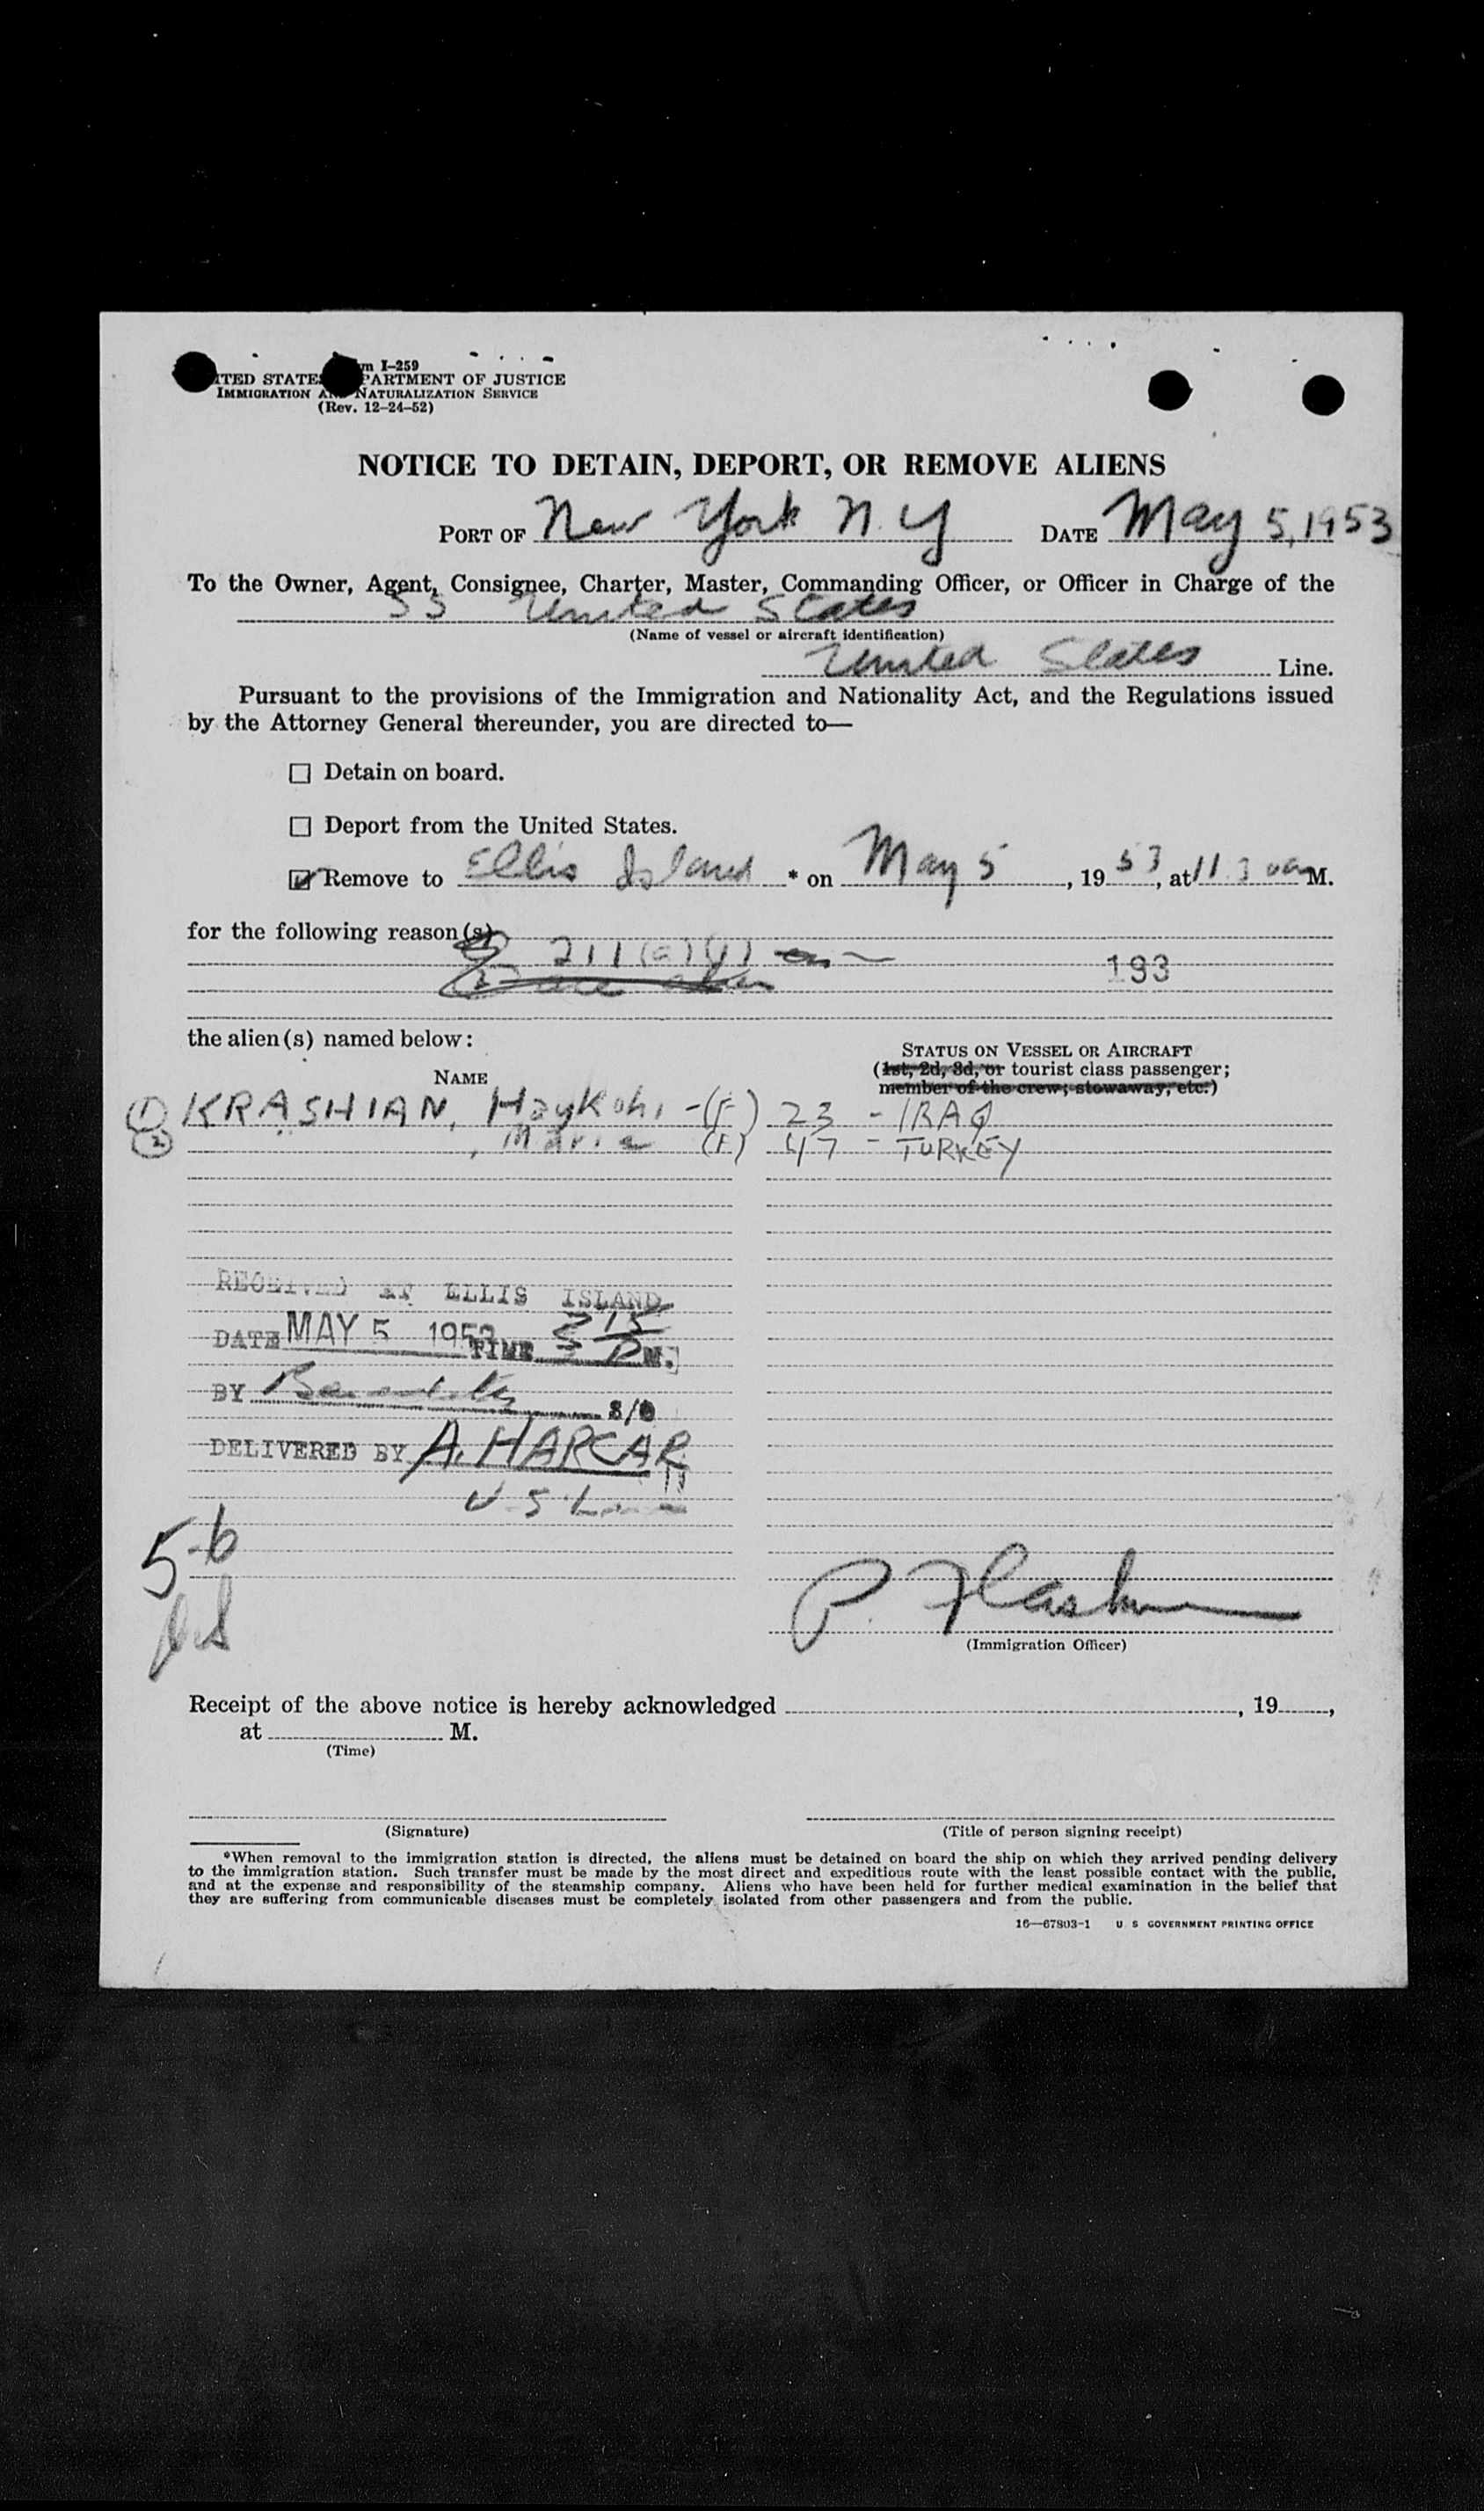 m I-259
ITED STATES PARTMENT OF JUSTICE
IMMIGRATION AND NATURALIZATION SERVICE
(Rev. 12-24-52)
NOTICE TO DETAIN, DEPORT, OR REMOVE ALIENS
PORT OF New York N.Y DATE May 5, 1953
To the Owner, Agent, Consignee, Charter, Master, Commanding Officer, or Officer in Charge of the
SS United States
(Name of vessel or aircraft identification)
United States Line.
Pursuant to the provisions of the Immigration and Nationality Act, and the Regulations issued
by the Attorney General thereunder, you are directed to—
Detain on board.
Deport from the United States.
Remove to Ellis Island * on May 5, 1953, at 11 30 am M.
for the following reason(s)
193
the alien(s) named below:
STATUS ON VESSEL OR AIRCRAFT
(1st, 2d, 3d, or tourist class passenger;
member of the crew; stowaway, etc.)
NAME
(1) KRASHIAN, Haykohi - (F) 23 - IRAQ
(2) , Maria (F) 47 - TURKEY
RECEIVED AT ELLIS ISLAND
DATE MAY 5 1953 TIME 315 P M.
BY S/O
DELIVERED BY A. HARCAR
U S Lines
5-6
P. Flashm
(Immigration Officer)
Receipt of the above notice is hereby acknowledged , 19 ,
at M.
(Time)
(Signature) (Title of person signing receipt)
*When removal to the immigration station is directed, the aliens must be detained on board the ship on which they arrived pending delivery
to the immigration station. Such transfer must be made by the most direct and expeditious route with the least possible contact with the public,
and at the expense and responsibility of the steamship company. Aliens who have been held for further medical examination in the belief that
they are suffering from communicable diseases must be completely isolated from other passengers and from the public.
16—67803-1 U S GOVERNMENT PRINTING OFFICE